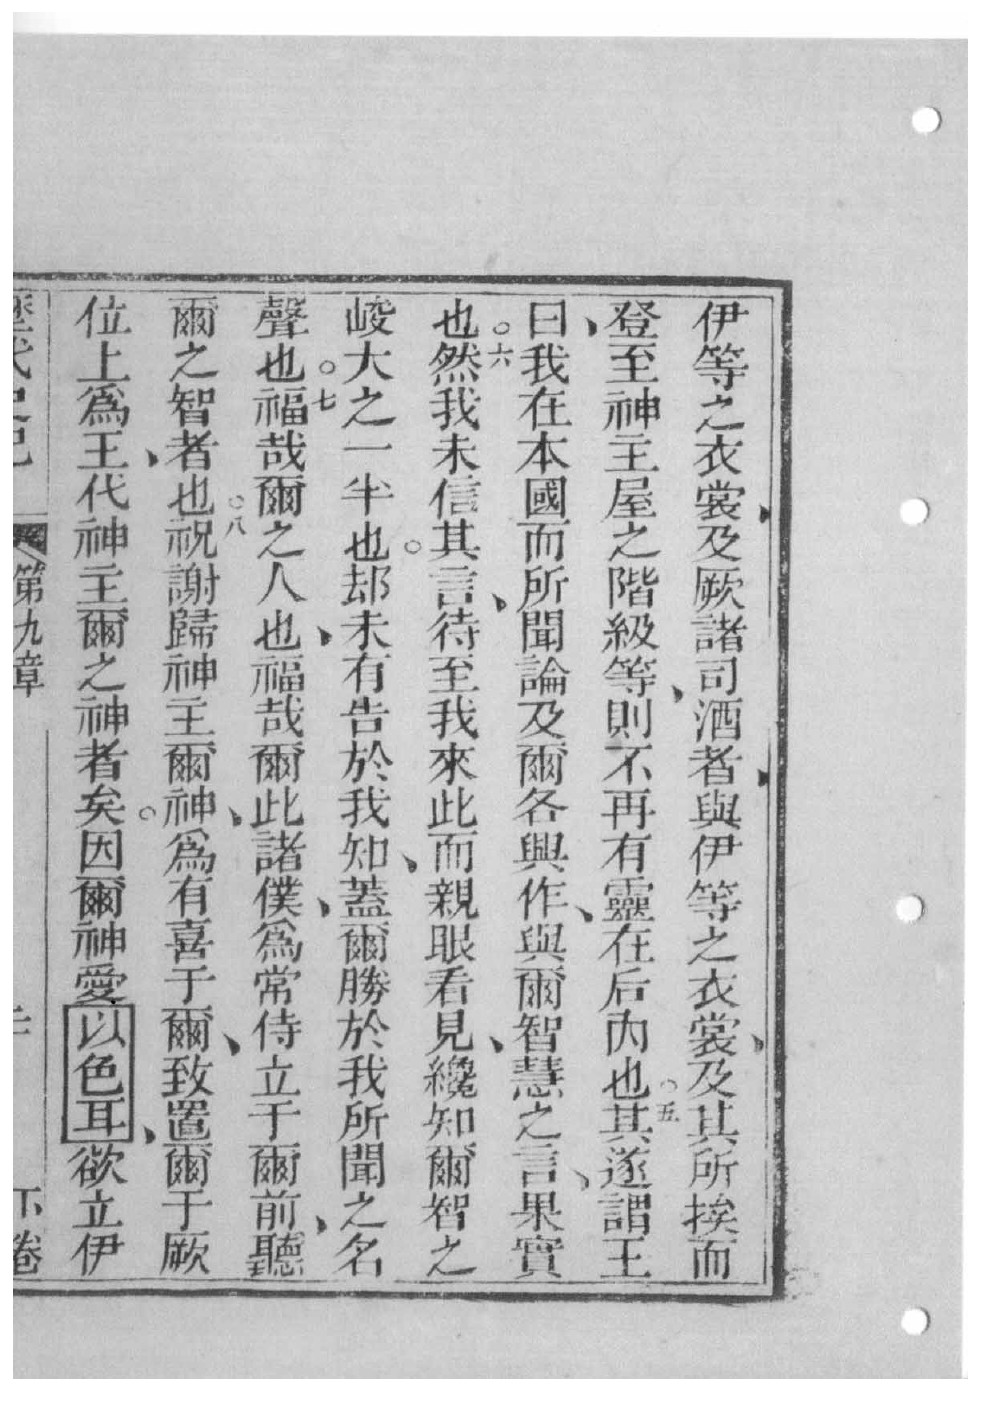 伊等之衣裳、及厥諸司酒者、與伊等之衣裳、及其所挨而
登至神主屋之階級等、則不再有靈在后內也。五其遂謂王
曰、我在本國而所聞論及爾各興作、與爾智慧之言、果實
也。六然我未信其言、待至我來此而親眼看見、纔知爾智之
峻大之一半也。却未有告於我知、蓋爾勝於我所聞之名
聲也。七福哉爾之人也、福哉爾此諸僕、爲常侍立于爾前、聽
爾之智者也。八祝謝歸神主爾神、爲有喜于爾、致置爾于厥
位上爲王、代神主爾之神者矣。因爾神愛以色耳、欲立伊
歷代史記 第九章 二 下卷